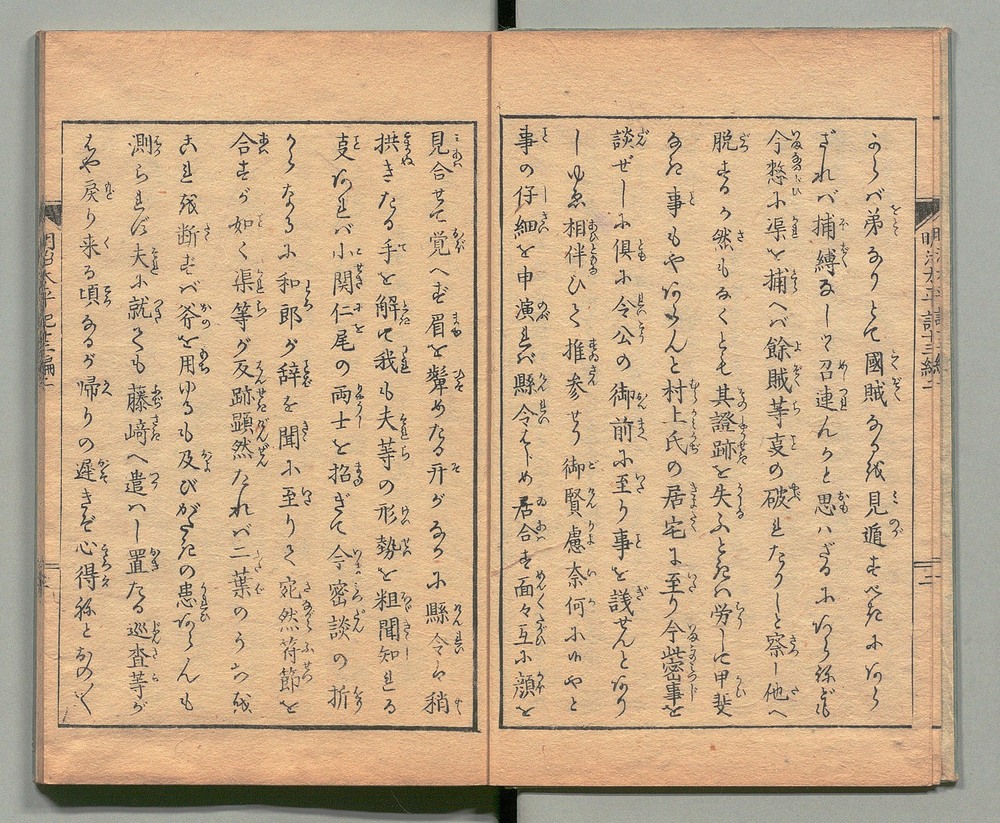 からバ弟なりとて國賊なるを見遁すべきにあら
ざれバ捕縛なして召連んかと思ハざるにあらねども
今憖に渠を捕へバ餘賊等叓の破れたりしと察し他へ
脱するか然もなくとも其證跡を失ふときは労して甲斐
なき事もやあらんと村上氏の居宅に至り今此密事を
談ぜしに倶に令公の御前に至り事を議せんとあり
しゆゑ相伴ひて推参せり御賢慮奈何にやと
事の仔細を申演れバ縣令はじめ居合す面々互に顔を
見合せて覚へず眉を顰めたる开がなかに縣令ハ稍
拱きたる手を解て我も夫等の形勢を粗聞知れる
叓あれバ小関仁尾の両士を招ぎて今密談の折
からなるに和郎が辞を聞に至りて宛然符節を
合すが如く渠等が反跡顕然たれバ二葉のうちに
これを断ずバ斧を用ゆるも及びがたきの患あらんも
測られねバ夫に就ても藤﨑へ遣ハし置たる巡査等が
はや戻り来る頃なるが帰りの遅きぞ心得ねとおの〱
明治太平記十三編二
二